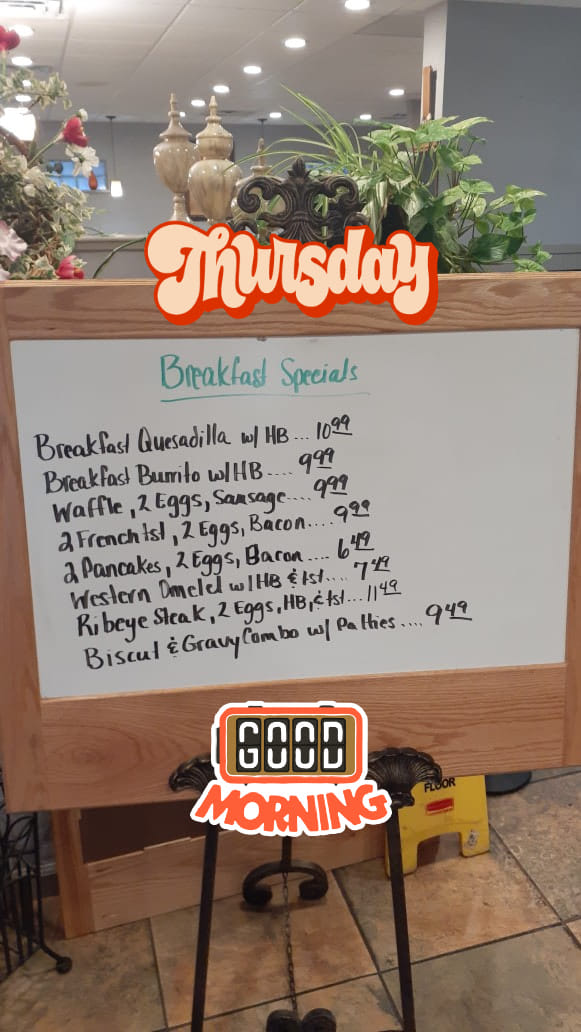 Thursday
Breakfast Specials
Breakfast Quesadilla w/ HB ... 10.99
Breakfast Burrito w/ HB .... 9.99
Waffle, 2 Eggs, Sausage.... 9.99
2 French tst, 2 Eggs, Bacon.... 9.99
2 Pancakes, 2 Eggs, Bacon .... 6.49
Western Omelet w/ HB & tst.... 7.49
Ribeye Steak, 2 Eggs, HB, & tst... 11.49
Biscut & Gravy Combo w/ Patties .... 9.49
GOOD
MORNING
FLOOR